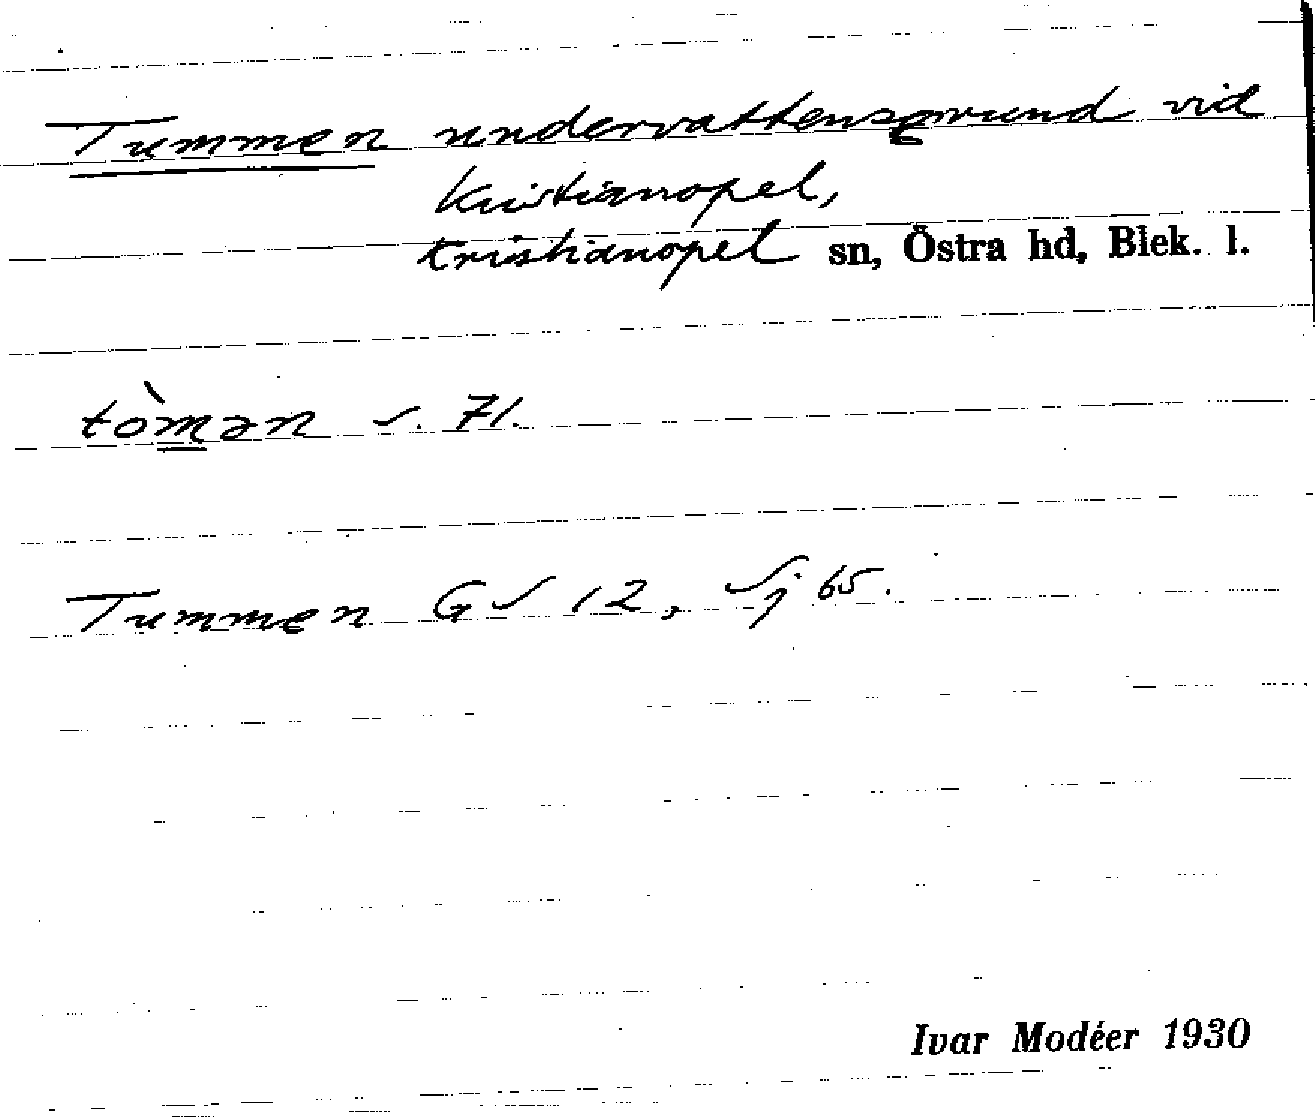 Tummen undervattensgrund vid
Kristianopel,
Kristianopel sn, Östra hd, Blek. l.
tòmən s. 71.
Tummen GS 12, Sj 65.
Ivar Modéer 1930